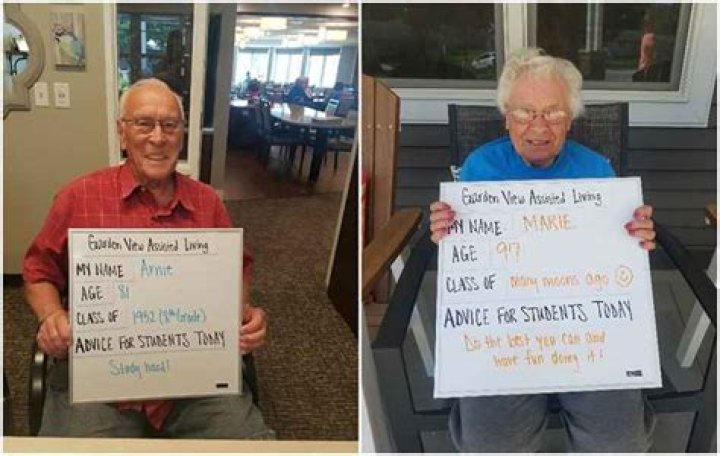 Garden View Assisted Living
MY NAME Arnie
AGE 81
CLASS OF 1952 (8th Grade)
ADVICE FOR STUDENTS TODAY
Study hard!
Garden View Assisted Living
MY NAME MARIE
AGE 97
CLASS OF many moons ago ☺
ADVICE FOR STUDENTS TODAY
Do the best you can and
have fun doing it!